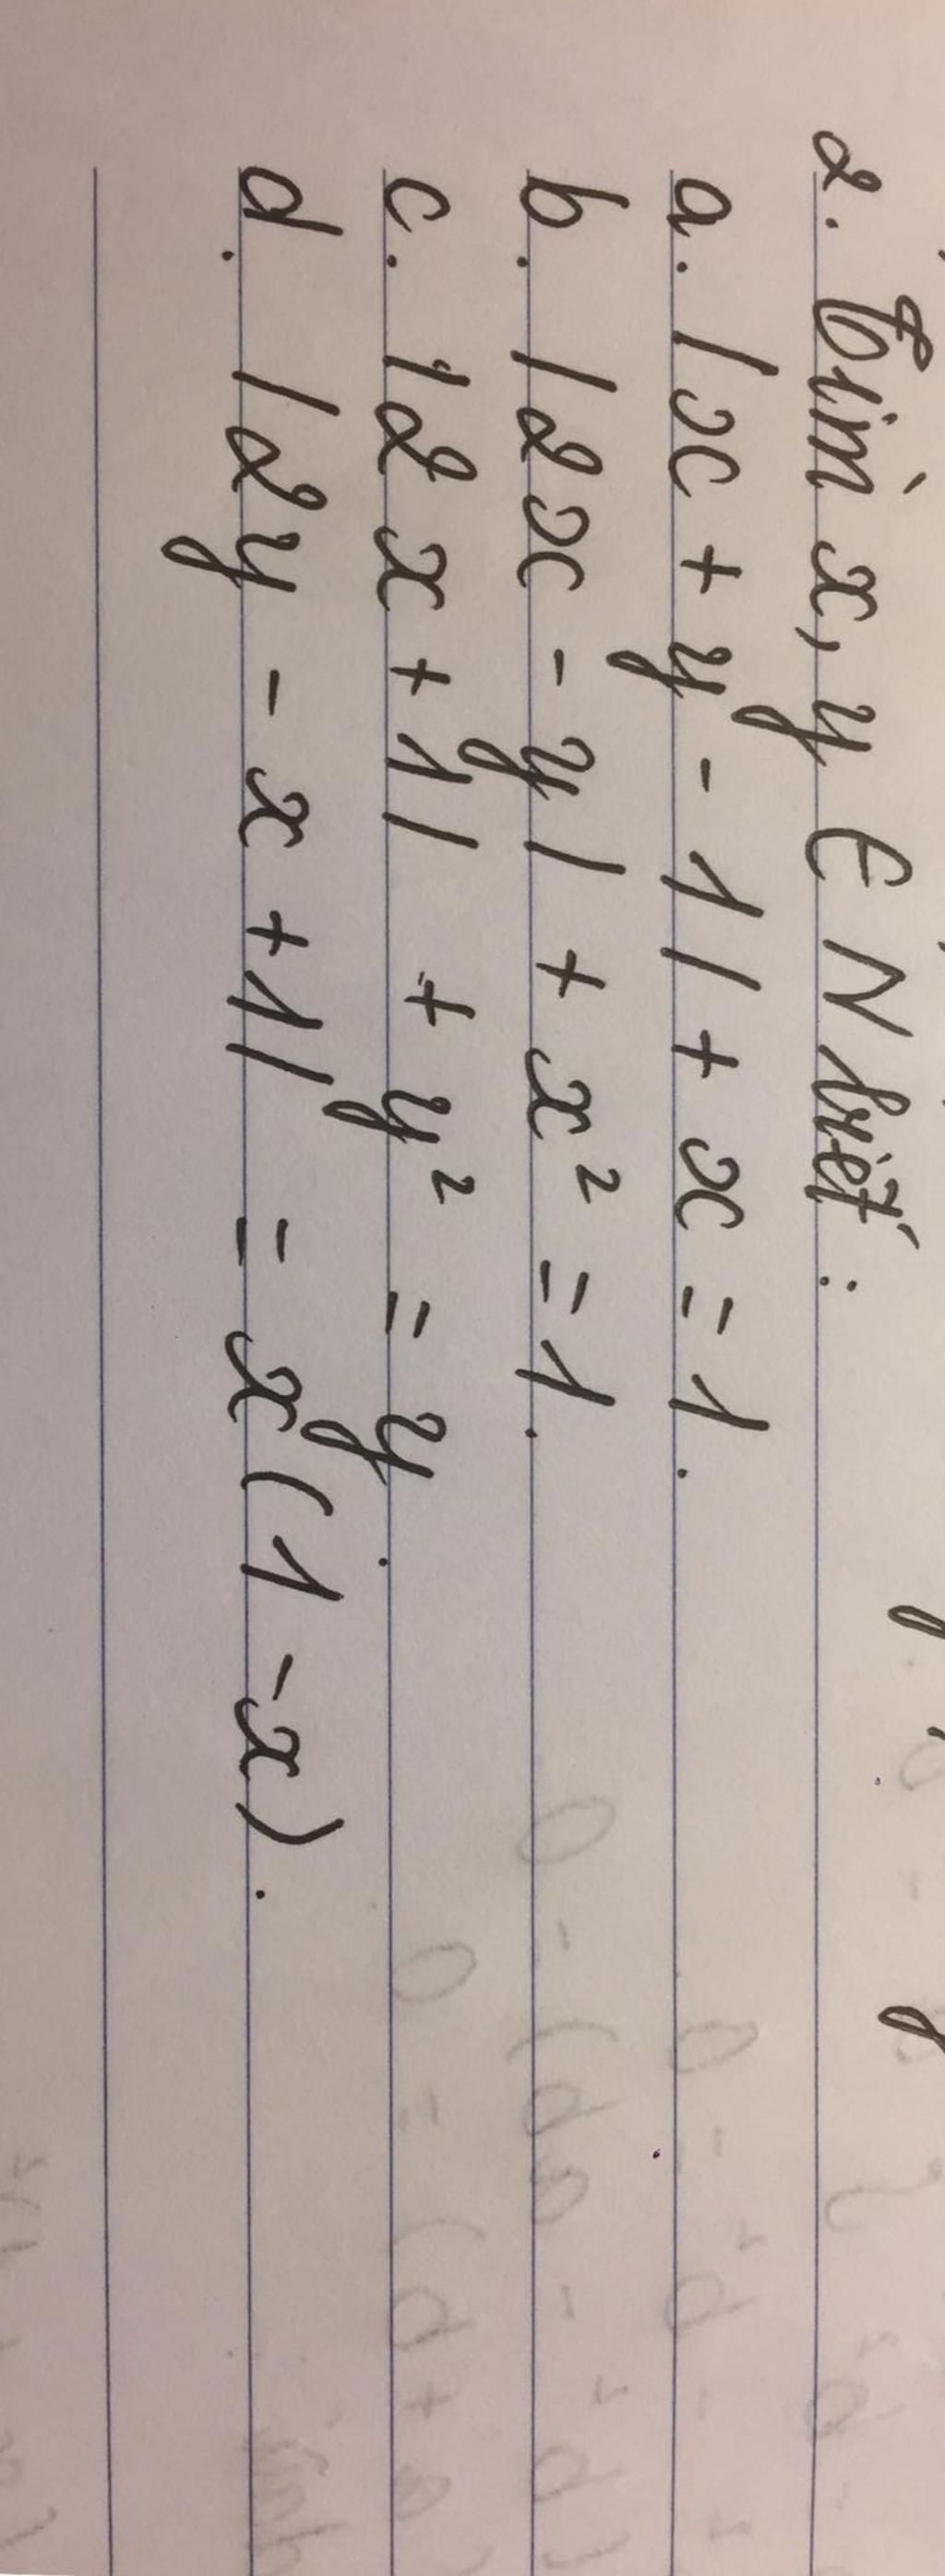 2. Tìm x, y ∈ N biết :
a. |x + y - 1| + x = 1.
b. |2x - y| + x² = 1.
c. |2x + 1| + y² = y.
d. |2y - x + 1| = x(1 - x).